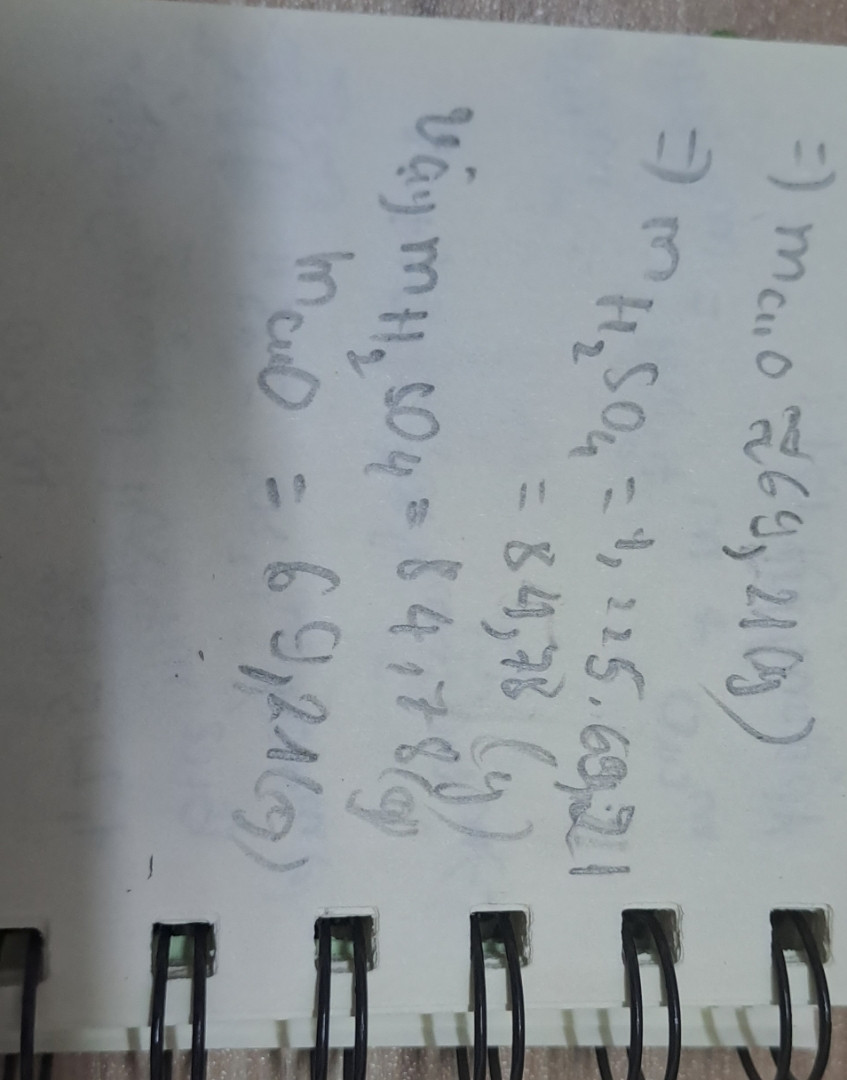 =) mCuO ≈ 69,21 (g)
=) mH₂SO₄ = 1,225.69,21
= 84,78 (g)
vậy mH₂SO₄ = 84,78 (g)
mCuO = 69,21 (g)